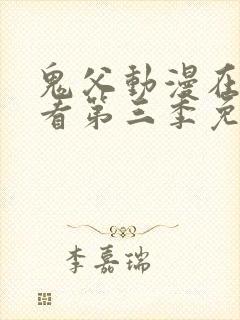 鬼父動漫在
看第三季免
李嘉瑞